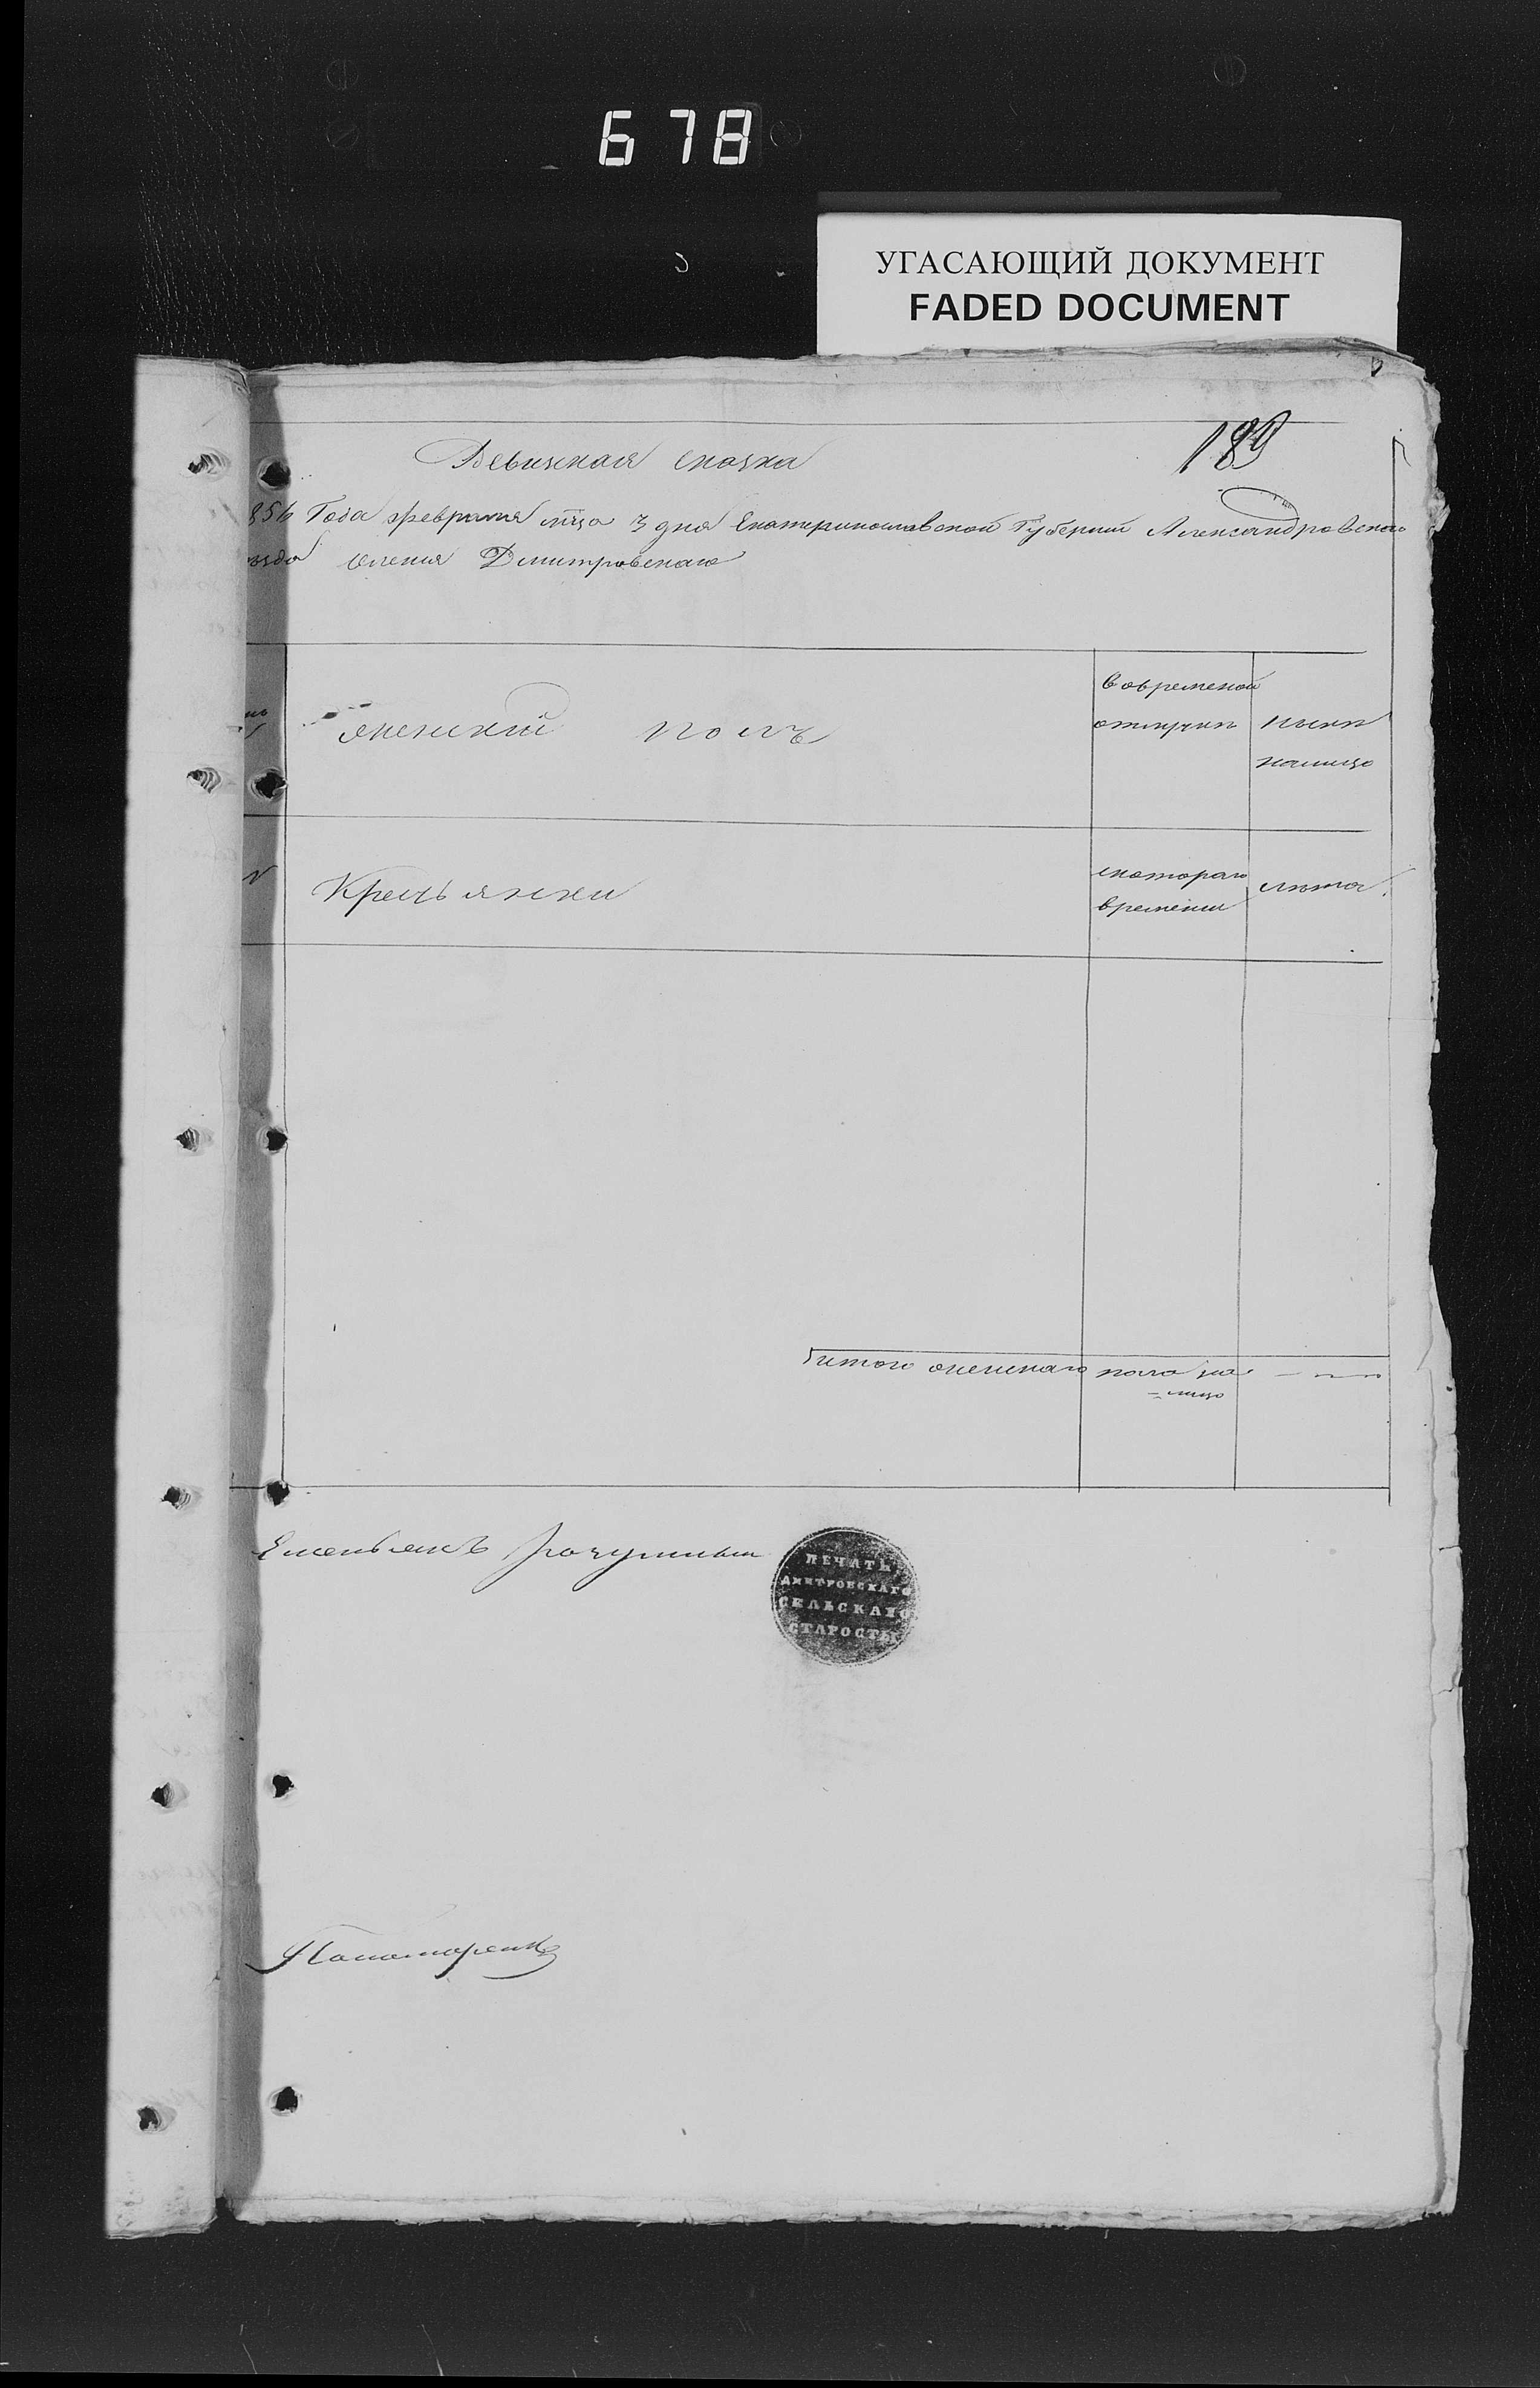 678
УГАСАЮЩИЙ ДОКУМЕНТ
FADED DOCUMENT
189
Ревизская сказка
856 Года февраля мца 3 дня Екатеринославской Губернии Александровского
езда селения Дмитровскаго
женский полъ
вовременой
отлучки
ныне
налицо
Крестьянки
скотораго
времени
лета
итого женскаго пола на
лицо
Емельянъ
ПЕЧАТЬ
ДМИТРОВСКАГО
СЕЛЬСКАГО
СТАРОСТЫ